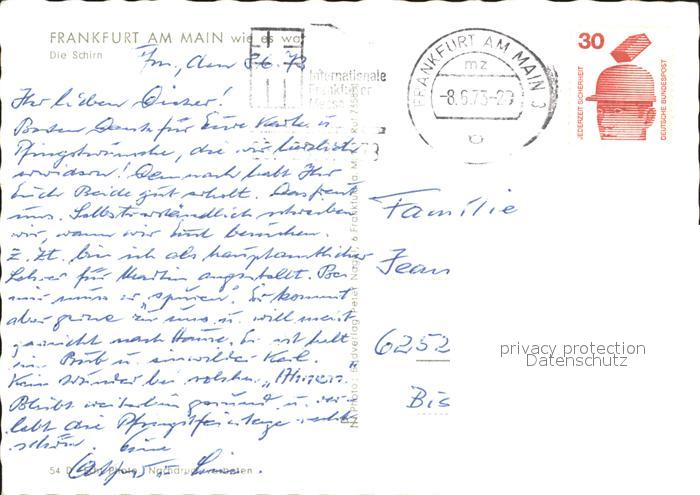 FRANKFURT AM MAIN wie es war
Die Schirn
Ffm., den 8.6.73
Internationale
Frankfurter
Messe
FRANKFURT AM MAIN 3
mz
-8.6.73-
30
JEDERZEIT SICHERHEIT
DEUTSCHE BUNDESPOST
Ihr lieben
Besten Dank für Eure Karte u.
Pfingstwünsche, die wir herzlichst
erwidern! Demnach habt Ihr
Euch Beide gut erholt. Das freut
uns. Selbstverständlich schreiben
wir, wann wir Euch besuchen.
Z. Zt. bin ich als hauptamtlicher
Lehrer für Martin angestellt. Bei
mir muss er "spuren". Er kommt
aber gerne zu uns u. will meist
gar nicht nach Hause. Er ist halt
ein u. Kerl.
Kein Wunder bei solchen "Ahnen"
Bleibt weiterhin gesund u.
lebt die Pfingstfeiertage recht
schön. Eure
Familie
Jean
6252
Bis
privacy protection
Datenschutz
54 Nachdruck verboten